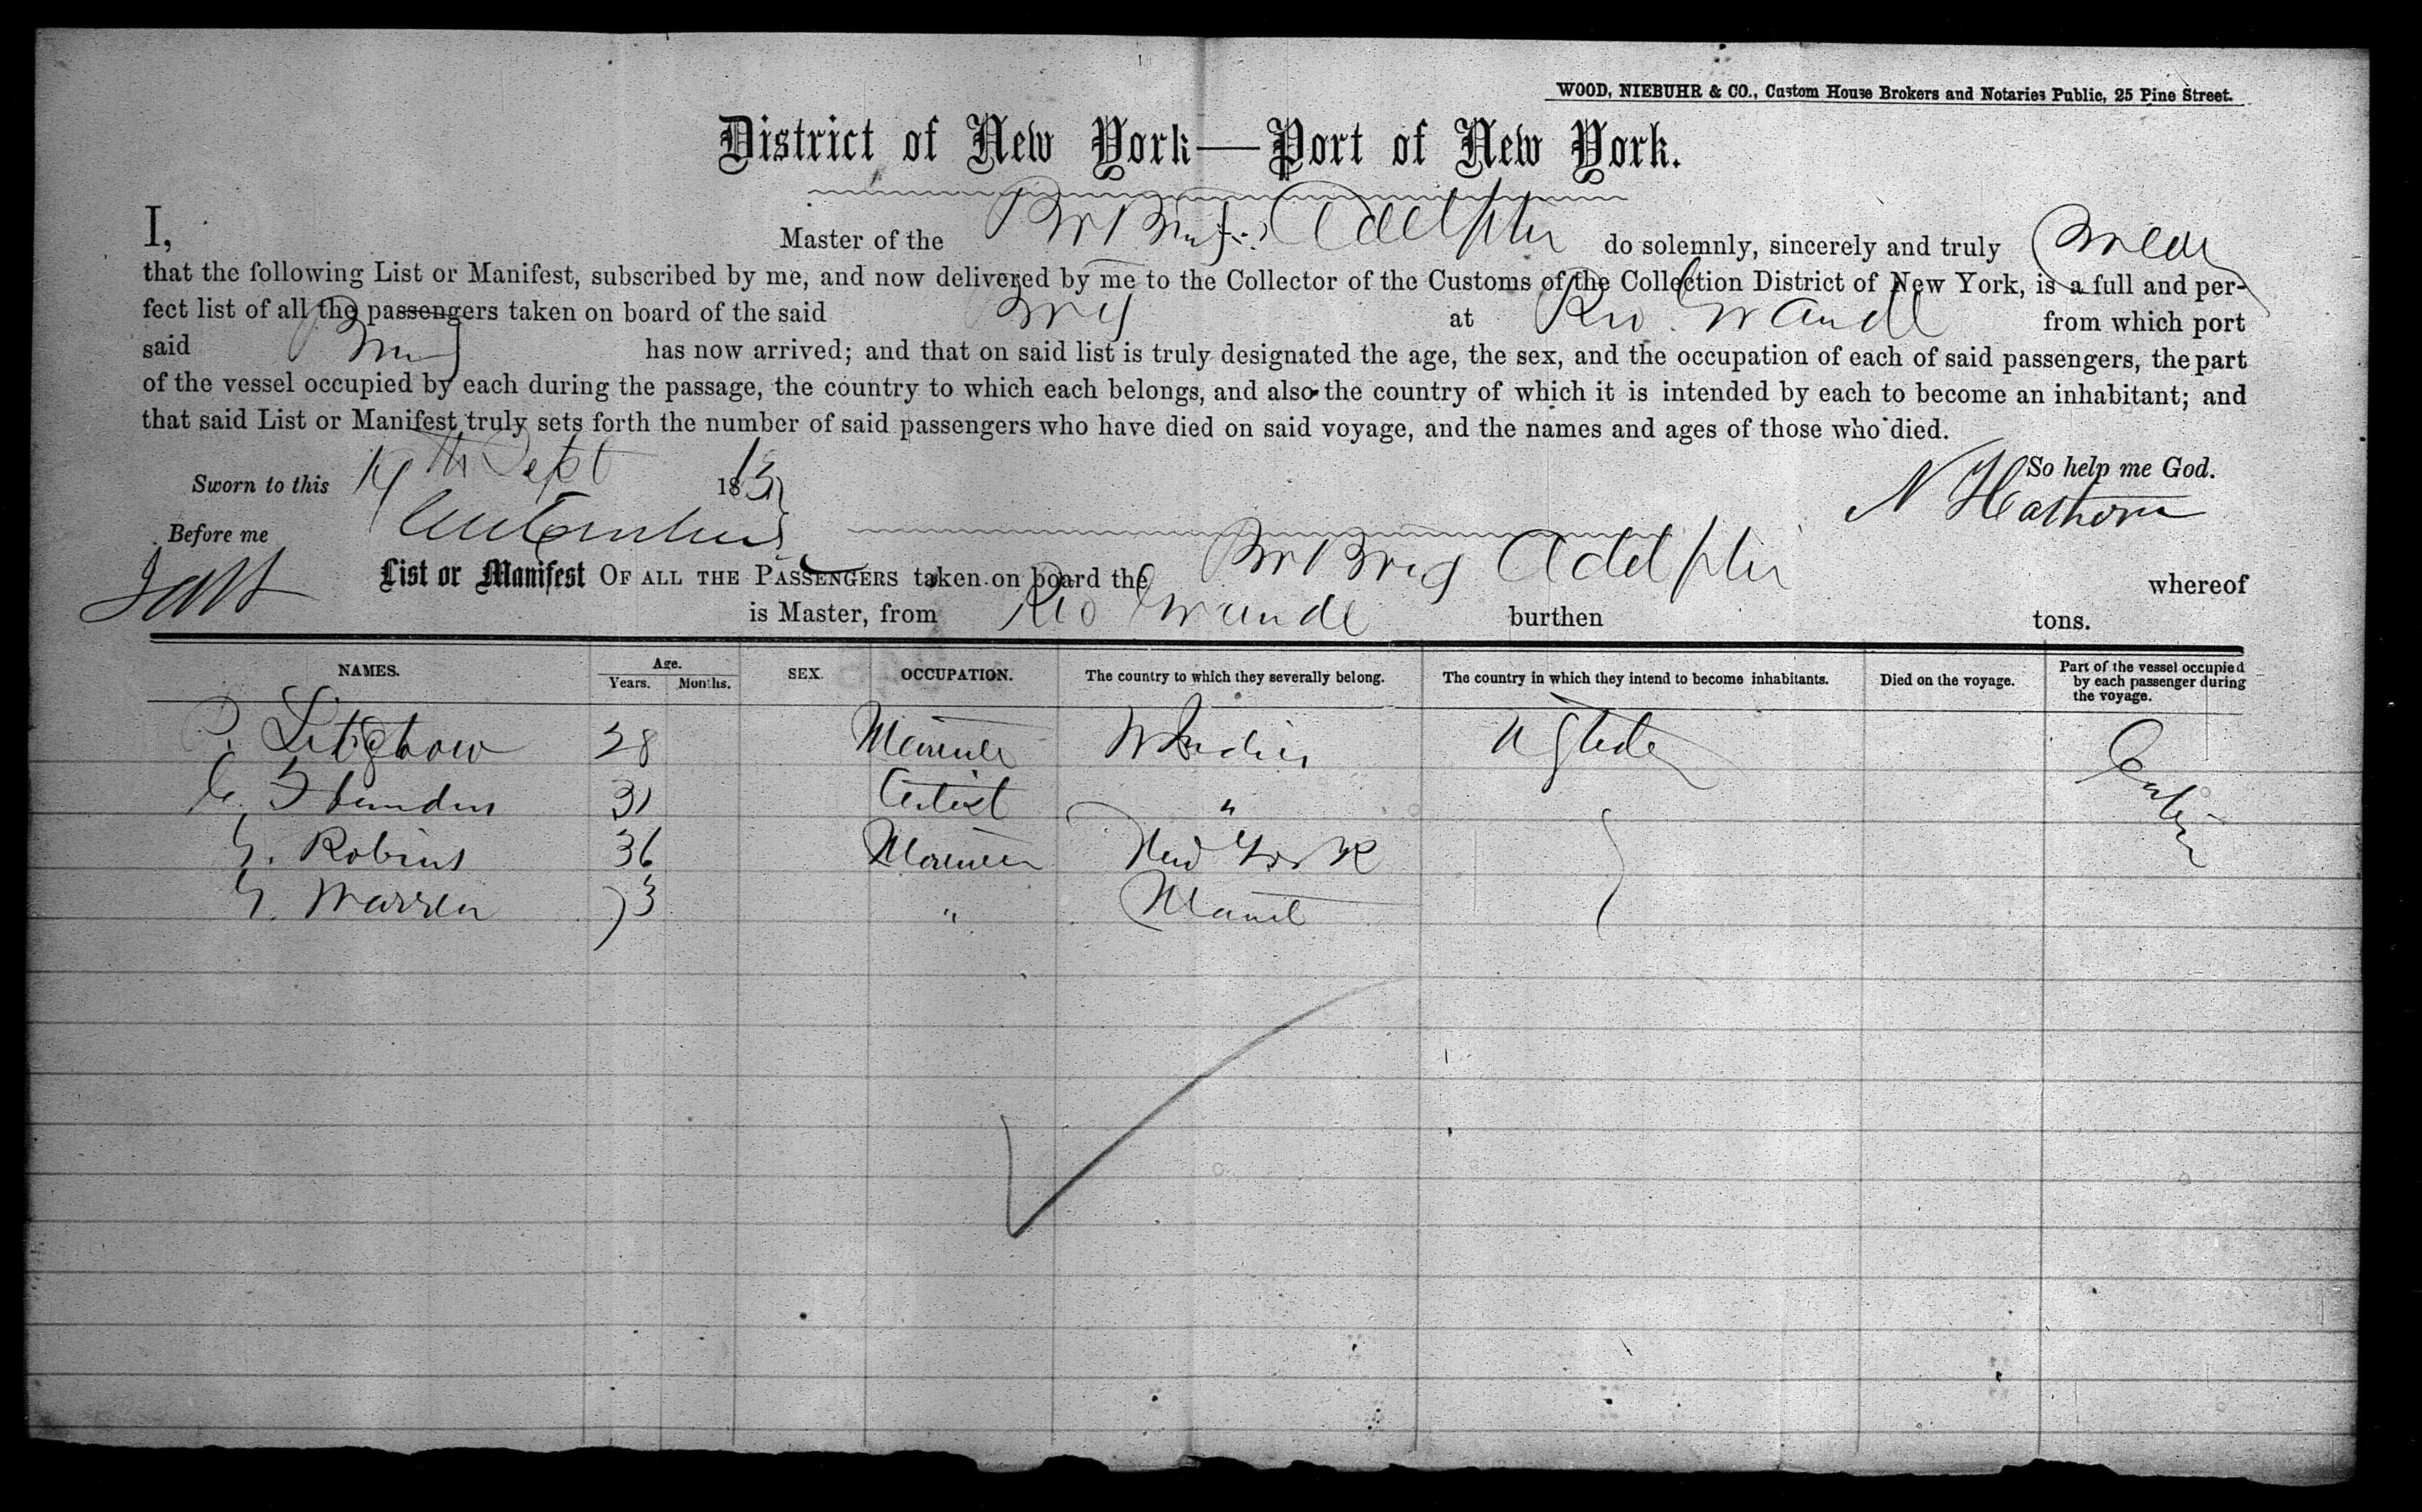 WOOD, NIEBUHR & CO., Custom House Brokers and Notaries Public, 25 Pine Street.
District of New York—Port of New York.
I, Master of the Br Brig Adelphi do solemnly, sincerely and truly swear
that the following List or Manifest, subscribed by me, and now delivered by me to the Collector of the Customs of the Collection District of New York, is a full and per-
fect list of all the passengers taken on board of the said Brig at Rio Grande from which port
said Brig has now arrived; and that on said list is truly designated the age, the sex, and the occupation of each of said passengers, the part
of the vessel occupied by each during the passage, the country to which each belongs, and also the country of which it is intended by each to become an inhabitant; and
that said List or Manifest truly sets forth the number of said passengers who have died on said voyage, and the names and ages of those who died.
Sworn to this Sept 18 So help me God.
Before me N Hathorn
List or Manifest OF ALL THE PASSENGERS taken on board the Br Brig Adelphi whereof
is Master, from Rio Grande burthen tons.
NAMES. Age. Years. Months. SEX. OCCUPATION. The country to which they severally belong. The country in which they intend to become inhabitants. Died on the voyage. Part of the vessel occupied by each passenger during the voyage.
P. 28 W Indies U States Cabin
31 Artist "
G. Robins 36 Mariner New York
G. Warren "